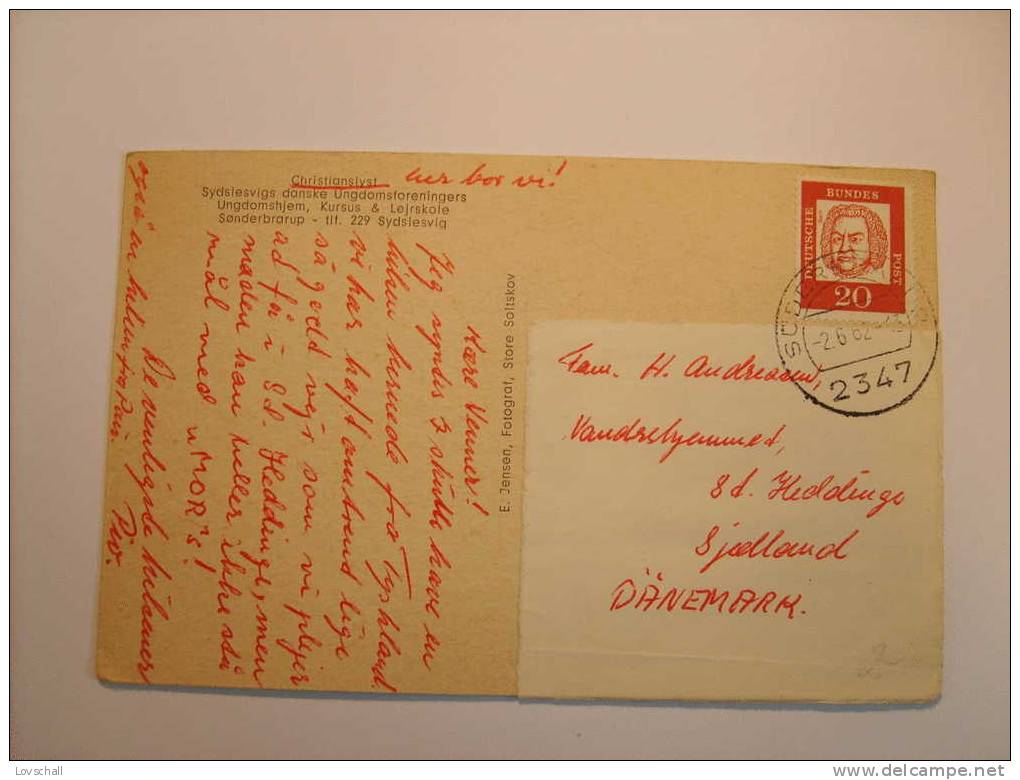 Christianslyst
Sydslesvigs danske Ungdomsforeningers
Ungdomshjem, Kursus & Lejrskole
Sønderbrarup - tlf. 229 Sydslesvig
her bor vi!
Kære Venner!
Jeg synes I skulle have en
hilsen hernede fra Tyskland.
vi har haft omtrent lige
så godt vejr som vi plejer
at få i St. Heddinge, men
maden kan heller ikke stå
mål med "MOR's!
De venligste hilsener
også en hilsen fra
E. Jensen, Fotograf, Store Soltskov
DEUTSCHE BUNDESPOST
20
-2.6.62
2347
Fam. H. Andreasen,
Vandrehjemmet,
St. Heddinge
Sjælland
DÄNEMARK.
2
Lovschall
delcampe.net